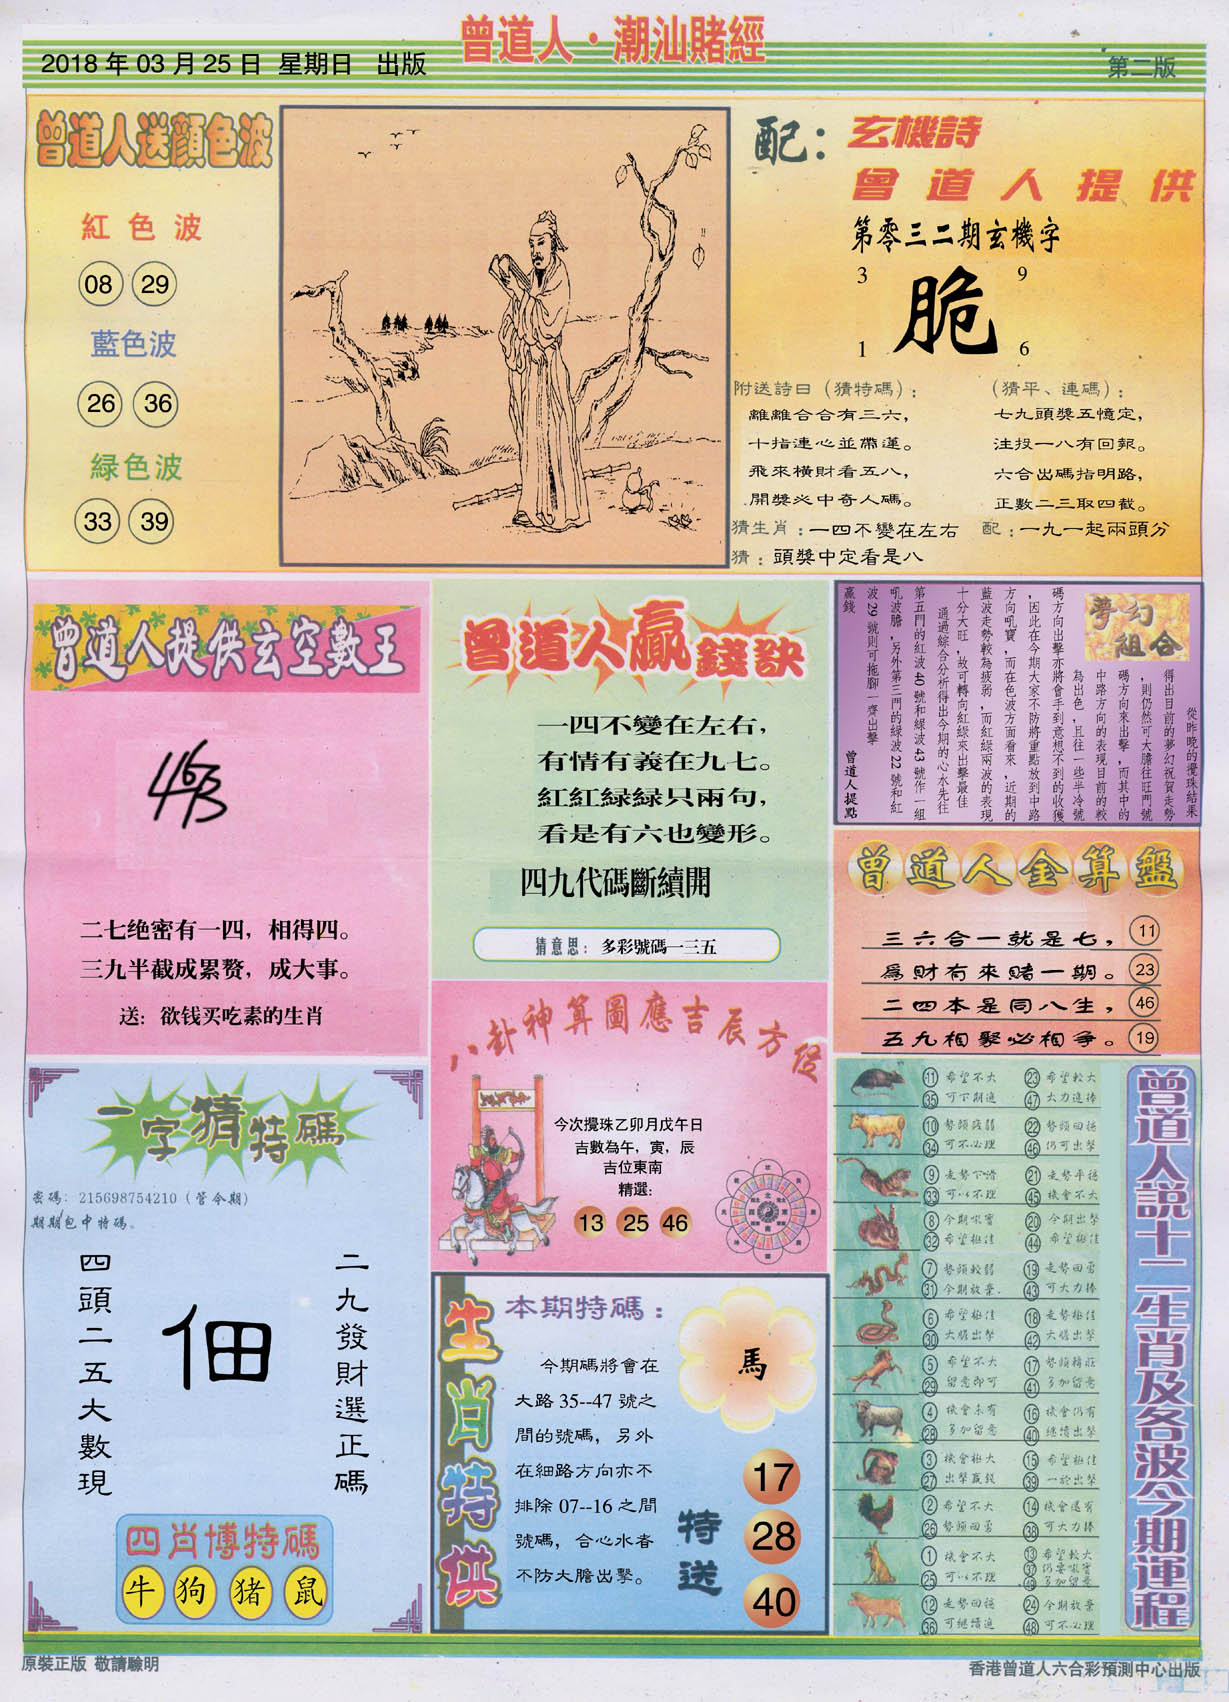 曾道人·潮汕賭經
2018年03月25日 星期日 出版
第二版
曾道人送顏色波
紅色波
08 29
藍色波
26 36
緑色波
33 39
配：玄機詩
曾道人提供
第零三二期玄機字
3 9
脆
1 6
附送詩曰（猜特碼）：
離離合合有三六，
十指連心並帶運。
飛來橫財看五八，
開獎必中奇人碼。
（猜平、連碼）：
七九頭獎五憶定，
注投一八有回報。
六合出碼指明路，
正數二三取四截。
猜生肖：一四不變在左右 配：一九一起兩頭分
猜：頭獎中定看是八
曾道人提供玄空數王
463
二七绝密有一四，相得四。
三九半截成累赘，成大事。
送：欲钱买吃素的生肖
曾道人贏錢訣
一四不變在左右，
有情有義在九七。
紅紅緑緑只兩句，
看是有六也變形。
四九代碼斷續開
猜意思：多彩號碼一三五
夢幻組合
從昨晚的攪珠結果
得出目前的夢幻祝賀走勢
，則仍然可大膽往旺門號
碼方向來出擊，而其中的
中路方向的表現目前的較
為出色，且往一些半冷號
碼方向出擊亦將會手到意想不到的收獲
，因此在今期大家不防將重點放到中路
方向吼寶，而在色波方面看來，近期的
藍波走勢較為疲弱，而紅緑兩波的表現
十分大旺，故可轉向紅緑來出擊最佳
通過綜合分析得出今期的心水先往
第五門的紅波40號和緑波43號作一組
吼波膽，另外第三門的緑波22號和紅
波29號則可拖腳一齊出擊
贏錢
曾道人提點
曾道人金算盤
三六合一就是七， 11
為財有來賭一期。 23
二四本是同八生， 46
五九相聚必相爭。 19
八卦神算圖應吉辰方位
今次攪珠乙卯月戊午日
吉數為午，寅，辰
吉位東南
精選：
13 25 46
一字猜特碼
密碼：215698754210（管今期）
期期包中特碼。
二九發財選正碼
佃
四頭二五大數現
四肖博特碼
牛 狗 猪 鼠
生肖特供
本期特碼：
今期碼將會在
大路35--47號之
間的號碼，另外
在細路方向亦不
排除07--16之間
號碼，合心水者
不防大膽出擊。
馬
特送
17
28
40
曾道人説十二生肖及各波今期運程
11 希望不大 23 希望較大
35 可下期進 47 大力進捧
10 勢頭疲弱 22 勢頭回穩
34 可不必理 46 仍可出擊
9 走勢下滑 21 走勢平穩
33 可以不理 45 機會不大
8 今期吼寶 20 今期出擊
32 希望極佳 44 希望極佳
7 勢頭較弱 19 走勢回勇
31 今期放棄 43 可大力捧
6 希望極佳 18 走勢極佳
30 大膽出擊 42 大膽出擊
5 希望不大 17 勢頭轉旺
29 留意即可 41 多加留意
4 機會未有 16 機會仍有
28 多加留意 40 繼續出擊
3 機會極大 15 希望極佳
27 出擊贏錢 39 一於出擊
2 希望不大 14 機會還有
26 勢頭回勇 38 可大力捧
1 機會不大 13 希望較大
25 可以不理 37 仍要吼寶
49 多加留意
12 走勢回穩 24 今期放棄
36 可繼續進 48 可不必理
原裝正版 敬請驗明
香港曾道人六合彩預測中心出版